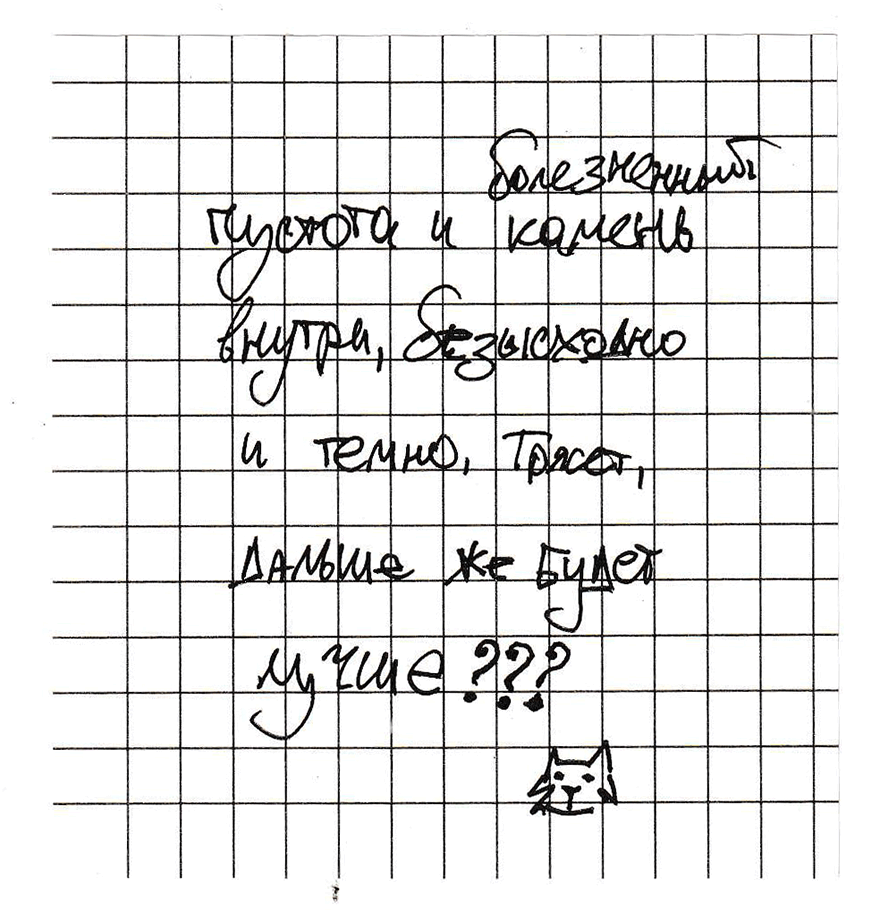 болезненный
пустота и камень
внутри, безысходно
и темно. Трясет,
дальше же будет
лучше ???